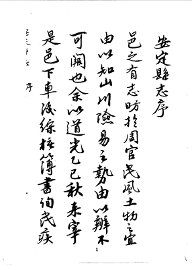 安定縣志序
邑之有志昉於周官民風土物之宜
由以知山川險易之勢由以辨不
可闕也余以道光乙巳秋来宰
是邑下車後綜核簿書詢民疾
序